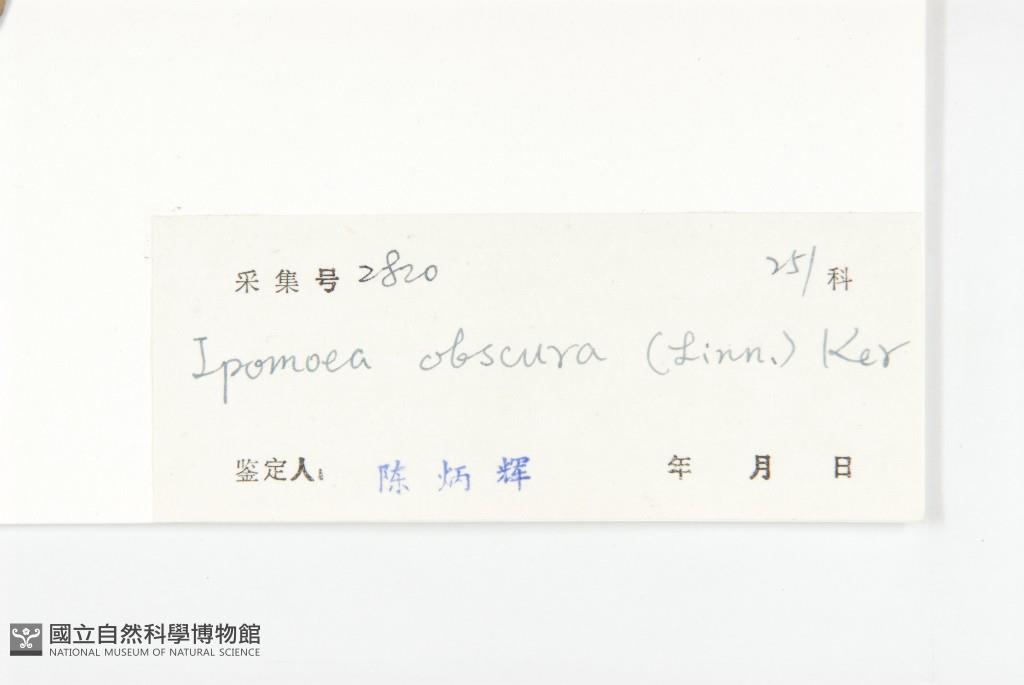 采集号 2820 251 科
Ipomoea obscura (Linn.) Ker
鉴定人: 陈炳辉 年 月 日
國立自然科學博物館
NATIONAL MUSEUM OF NATURAL SCIENCE